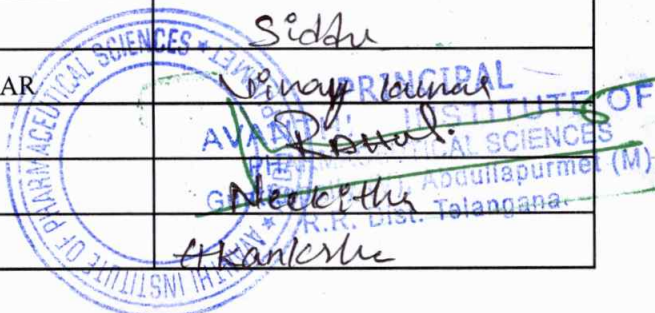 Siddu
AR
Vinay kumar
Rahul.
Neekitha
Akanksha
PRINCIPAL
AVANTHI INSTITUTE OF
PHARMACEUTICAL SCIENCES
Abdullapurmet (M)
R.R. Dist. Telangana.
AVANTHI INSTITUTE OF PHARMACEUTICAL SCIENCES